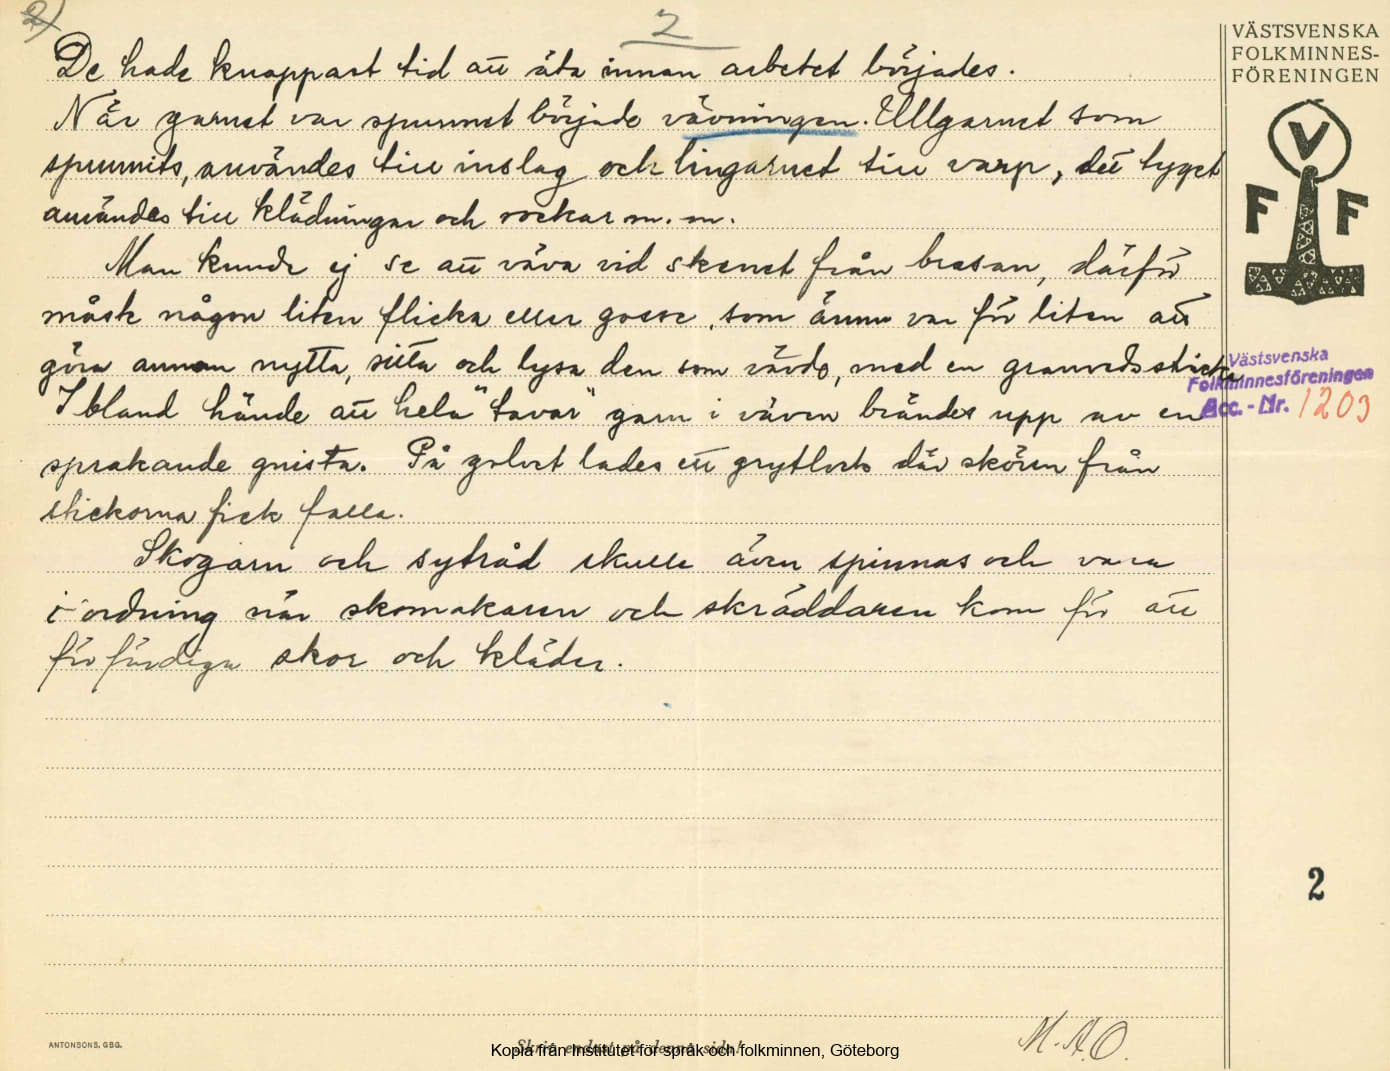 2)
2
De hade knappast tid att äta innan arbetet börjades.
När garnet var spunnet började vävningen. Ullgarnet som
spunnits, användes till inslag och lingarnet till varp, det tyget
användes till klädningar och rockar m. m.
Man kunde ej se att väva vid skenet från brasan, därför
måste någon liten flicka eller gosse, som ännu var för liten att
göra annan nytta, sitta och lysa den som vävde, med en granvedssticka
Ibland hände att hela "tavar" garn i väven brändes upp av en
sprakande gnista. På golvet lades ett grytlock där skören från
stickorna fick falla.
Skogarn och sytråd skulle även spinnas och vara
i ordning när skomakaren och skräddaren kom för att
förfärdiga skor och kläder.
VÄSTSVENSKA
FOLKMINNES-
FÖRENINGEN
V
F F
Västsvenska
Folkminnesföreningen
Acc.-Nr. 1203
2
M. A. O.
ANTONSONS, GBG.
Skriv endast på denna sida!
Kopia från Institutet för språk och folkminnen, Göteborg